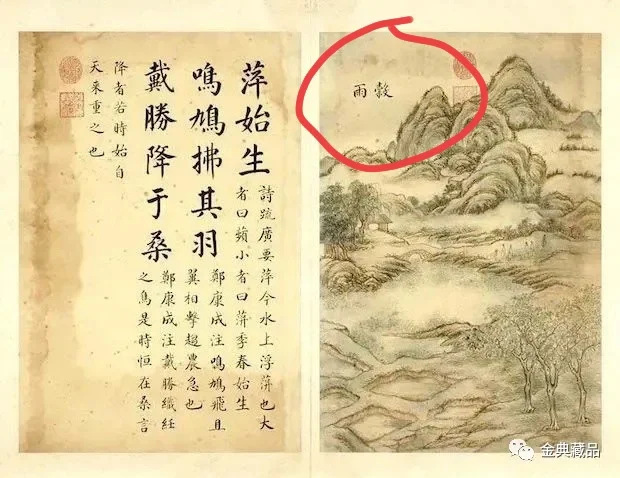 穀雨
萍始生
詩疏廣要萍今水上浮萍也大
者曰蘋小者曰萍季春始生
鳴鳩拂其羽
鄭康成注鳴鳩飛且
翼相擊趨農急也
戴勝降于桑
鄭康成注戴勝織紝
之鳥是時恒在桑言
降者若時始自
天來重之也
金典藏品